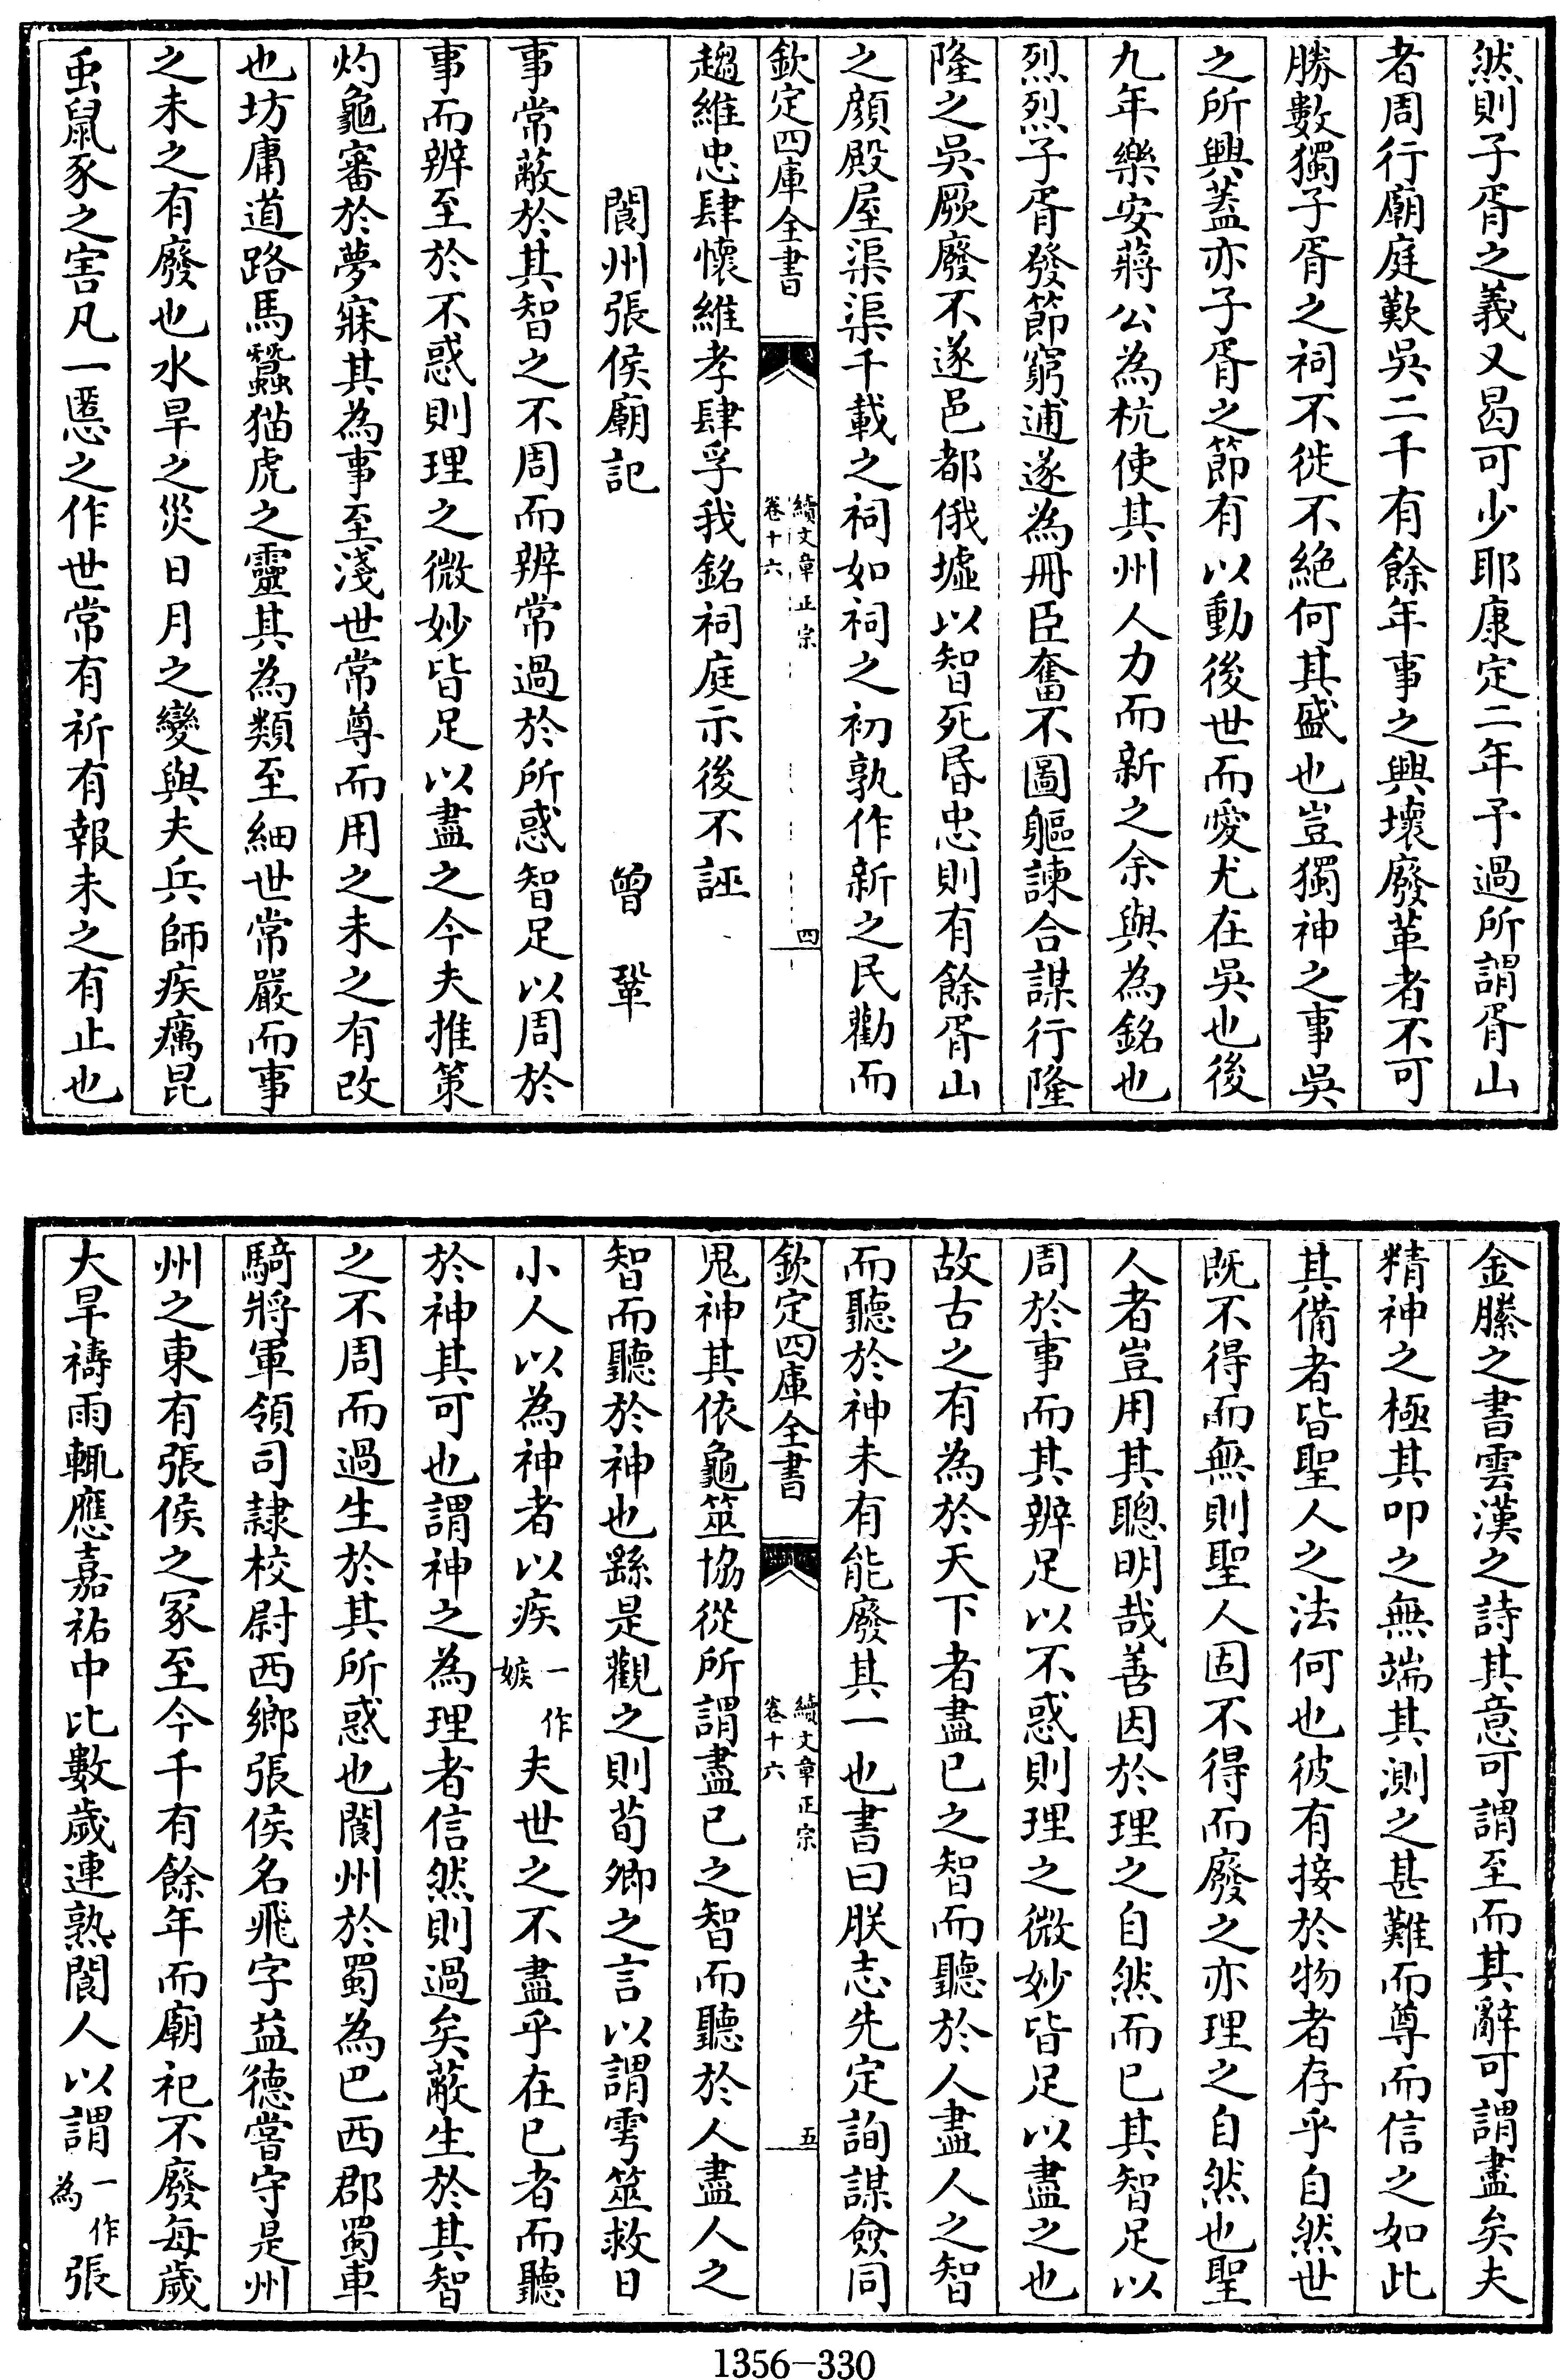 然則子胥之義又曷可少耶康定二年予過所謂胥山
者周行廟庭歎吳二千有餘年事之興壞廢革者不可
勝數獨子胥之祠不徙不絕何其盛也豈獨神之事吳
之所興蓋亦子胥之節有以動後世而愛尤在吳也後
九年樂安蔣公為杭使其州人力而新之余與為銘也
烈烈子胥發節窮逋遂為冊臣奮不圖軀諫合謀行隆
隆之吳厥廢不遂邑都俄墟以智死昏忠則有餘胥山
之顔殿屋渠渠千載之祠如祠之初孰作新之民勸而
欽定四庫全書
續文章正宗
卷十六
四
趨維忠肆懷維孝肆孚我銘祠庭示後不誣
閬州張侯廟記
曾鞏
事常蔽於其智之不周而辨常過於所惑智足以周於
事而辨至於不惑則理之微妙皆足以盡之今夫推策
灼龜審於夢寐其為事至淺世常尊而用之未之有改
也坊庸道路馬蠶猫虎之靈其為類至細世常嚴而事
之未之有廢也水旱之災日月之變與夫兵師疾癘昆
虫鼠豕之害凡一慝之作世常有祈有報未之有止也
金縢之書雲漢之詩其意可謂至而其辭可謂盡矣夫
精神之極其叩之無端其測之甚難而尊而信之如此
其備者皆聖人之法何也彼有接於物者存乎自然世
既不得而無則聖人固不得而廢之亦理之自然也聖
人者豈用其聰明哉善因於理之自然而已其智足以
周於事而其辨足以不惑則理之微妙皆足以盡之也
故古之有為於天下者盡已之智而聽於人盡人之智
而聽於神未有能廢其一也書曰朕志先定詢謀僉同
欽定四庫全書
續文章正宗
卷十六
五
鬼神其依龜筮協從所謂盡已之智而聽於人盡人之
智而聽於神也繇是觀之則荀卿之言以謂雩筮救日
小人以為神者以疾一作嫉夫世之不盡乎在已者而聽
於神其可也謂神之為理者信然則過矣蔽生於其智
之不周而過生於其所惑也閬州於蜀為巴西郡蜀車
騎將軍領司隷校尉西鄉張侯名飛字益德嘗守是州
州之東有張侯之冢至今千有餘年而廟祀不廢每歲
大旱禱雨輒應嘉祐中比數歲連熟閬人以謂一作為張
1356-330